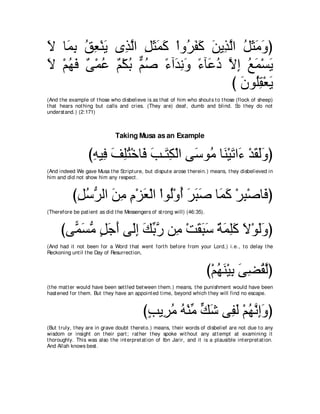 (وَمَثَلُ الَّذِينَ كَفَرُواْ كَمَثَلِ الَّذِى يَنْعِقُ بِمَا لاَ
يَسْمَعُ إِلاَّ دُعَآءً وَنِدَآءً صُمٌّ بُكْمٌ عُمْىٌ فَهُمْ لاَ
يَعْقِلُونَ )
(And the example of those who disbelieve is as that of him who shouts to those (flock of sheep)
that hears nothing but calls and cries. (They are) deaf, dumb and blind. So they do not
understand.) (2:171)
Taking Musa as an Example
(وَلَقَدْ ءَاتَيْنَا مُوسَى الْكِتَـبَ فَاخْتُلِفَ فِيهِ)
(And indeed We gave Musa the Scripture, but dispute arose therein.) means, they disbelieved in
him and did not show him any respect.
(فَاصْبِرْ كَمَا صَبَرَ أُوْلُواْ الْعَزْمِ مِنَ الرُّسُلِ)
(Therefore be patient as did the Messengers of strong will) (46:35).
(وَلَوْلاَ كَلِمَةٌ سَبَقَتْ مِن رَّبِّكَ إِلَى أَجَلٍ مُّسَمًّى)
(And had it not been for a Word that went forth before from your Lord,) i.e., to delay the
Reckoning until the Day of Resurrection,
(لَّقُضِىَ بَيْنَهُمْ)
(the matter would have been settled between them.) means, the punishment would have been
hastened for them. But they have an appointed time, beyond which they will find no escape.
(وَإِنَّهُمْ لَفِى شَكٍّ مِّنْهُ مُرِيبٍ)
(But truly, they are in grave doubt thereto.) means, their words of disbelief are not due to any
wisdom or insight on their part; rather they spoke without any attempt at examining it
thoroughly. This was also the interpretation of Ibn Jarir, and it is a plausible interpretation.
And Allah knows best.